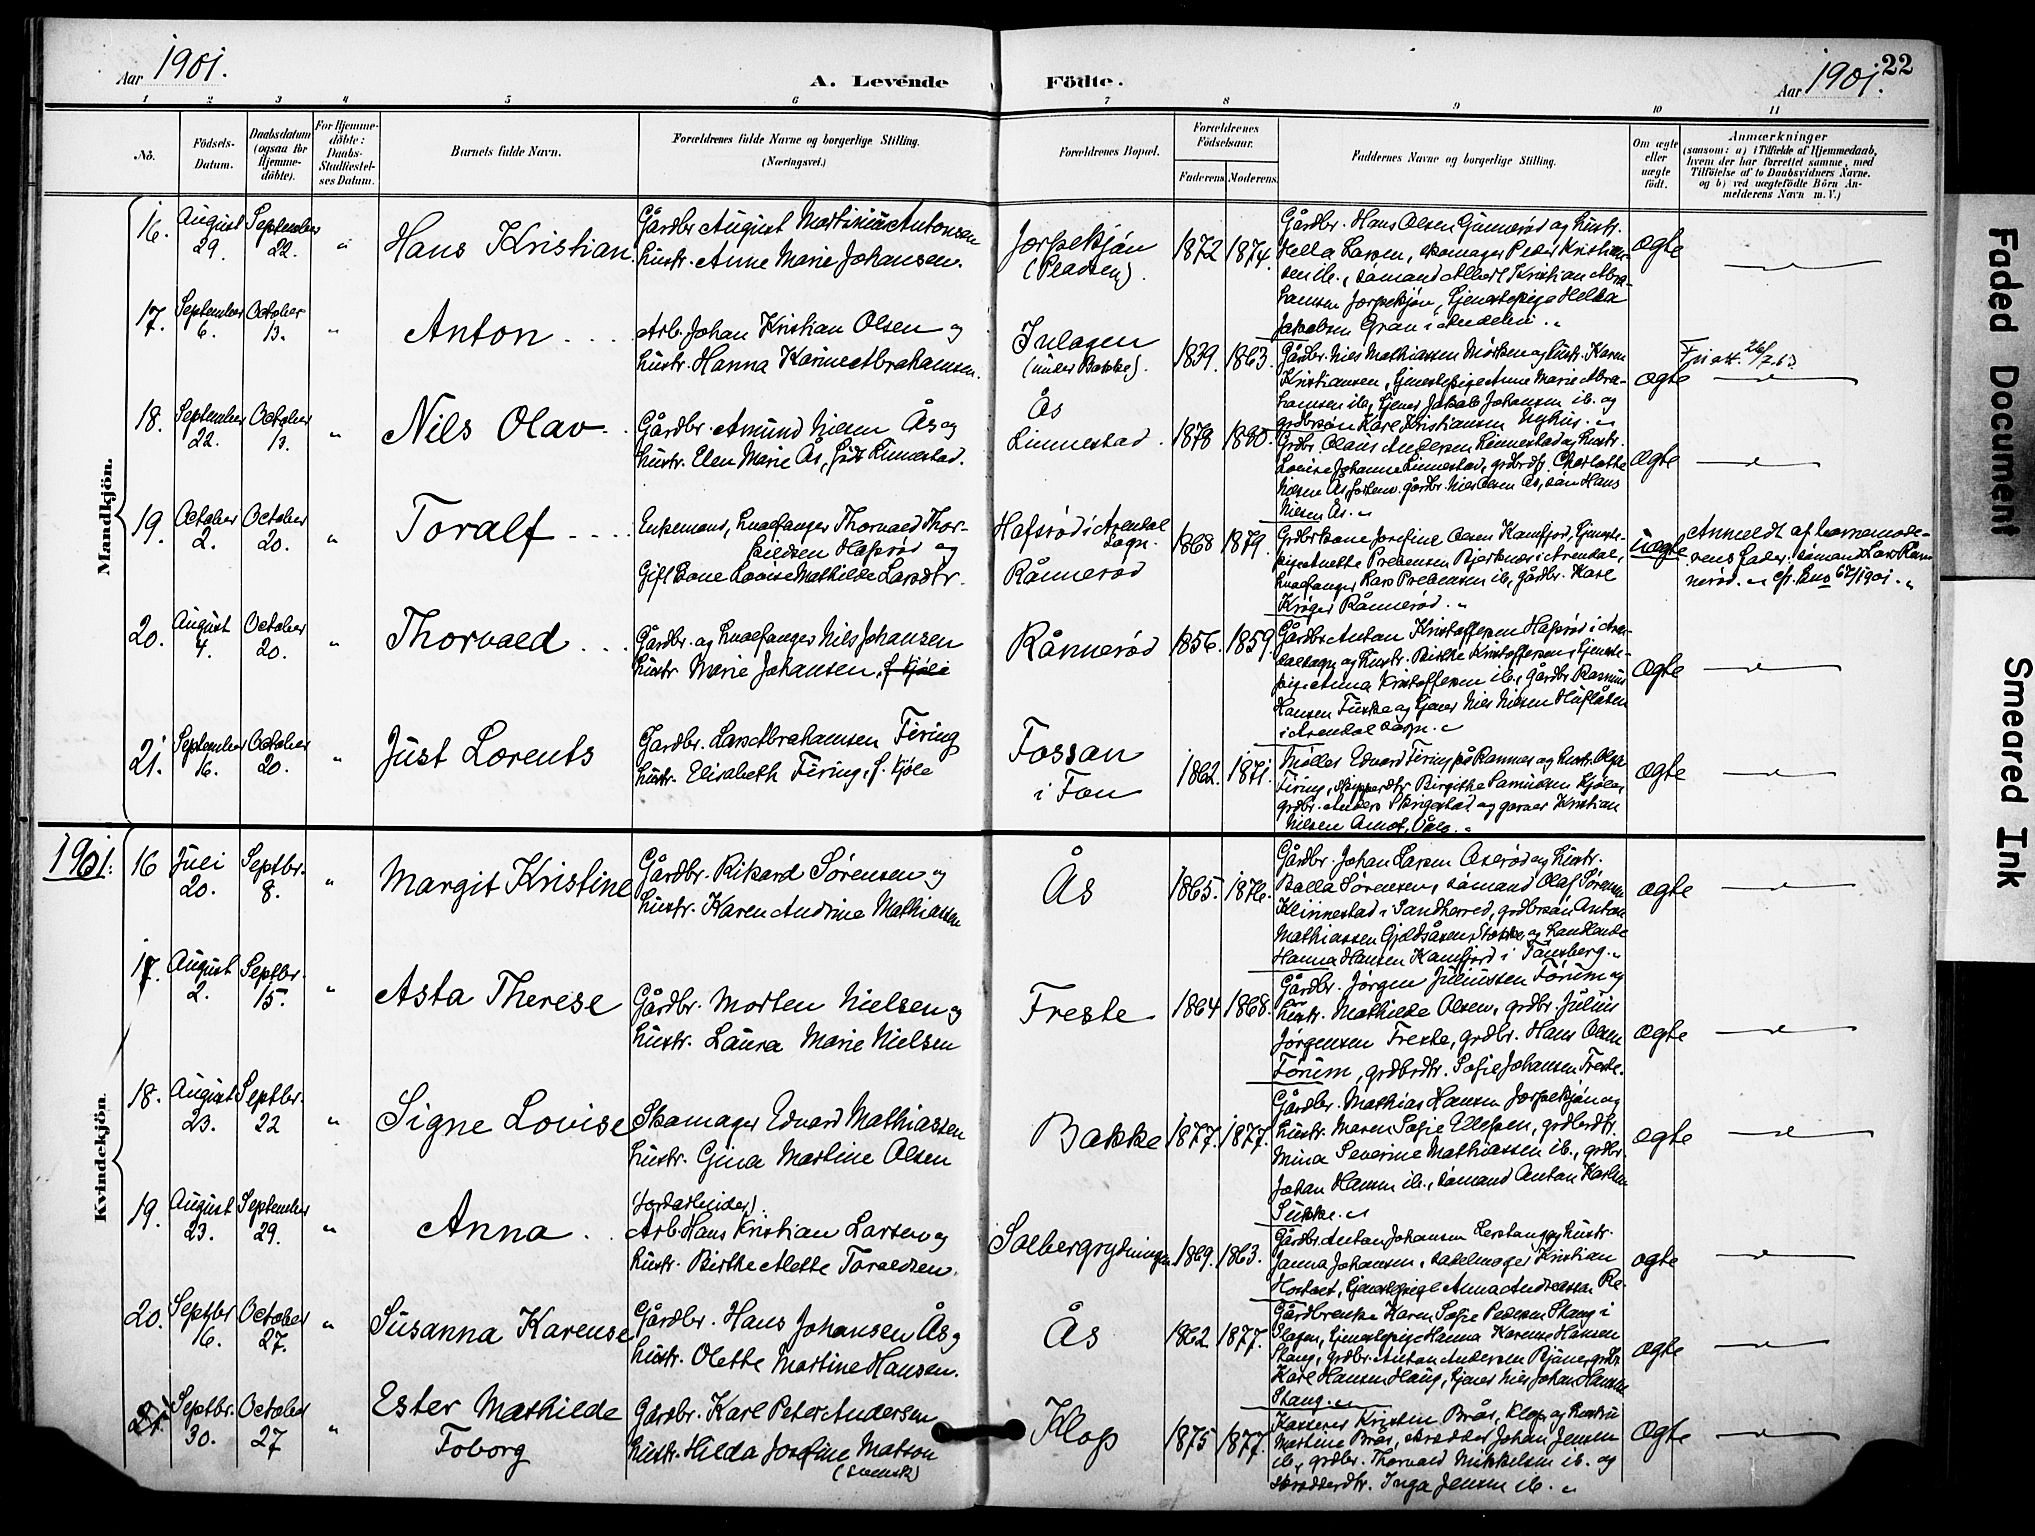 Aar 1901.
A. Levende
Födte.
Aar 1901.
22
1 2 3 4 5 6 7 8 9 10 11
No.
Födsels-
Datum.
Daabsdatum
(ogsaa for
Hjemme-
döbte).
For Hjemme-
döbte:
Daabs-
Stadfæstel-
ses Datum.
Barnets fulde Navn.
Forældrenes fulde Navne og borgerlige Stilling.
(Næringsvei.)
Forældrenes Bopæl.
Forældrenes
Födselsaar.
Faderens. Moderens.
Faddernes Navne og borgerlige Stilling.
Om ægte
eller
uægte
födt.
Anmærkninger
(saasom: a) i Tilfælde af Hjemmedaab,
hvem der har forrettet samme, med
Tilföielse af to Daabsvidners Navne.
og b) ved uægtefödte Börn An-
melderens Navn m. V.)
Mandkjön.
16. August 29. September 22. " Hans Kristian.
Gårdbr. August Martinius Antonsen
hustr. Anne Marie Johansen.
Jarpekjøn
(Pladsen).
1872 1874.
Gårdbr. Hans Olsen Gunnerød og hustr.
Hella Larsen, skomager Peder Kristian-
sen ib., sømand Albert Kristian Abra-
hamsen Jarpekjøn, tjenestepige Helka
Jakobsen Gran i Andebu.
ægte
17. September 6. October 13. " Anton
Arb. Johan Kristian Olsen og
hustr. Hanna Karine Abrahamsen.
Inlagen
(under Bakke).
1839. 1863.
Gårdbr. Niels Mathiassen Mørken og hustr. Karen
Kristiansen, tjenestepige Anne Marie Abra-
hamsen ib., tjener Jakob Johansen ib. og
grdbrsøn Karl Kristiansen Nyhus.
ægte
18. September 22. October 13. " Nils Olav
Gårdbr. Amund Nilsen Ås og
hustr. Elen Marie Ås, født Linnestad.
Ås
Linnestad.
1878 1880.
Grdbr. Olaus Andersen Linnestad og hustr.
Lovise Johanne Linnestad, grdbrdtr. Charlotte
Nilsen Ås, gårdbr. Niels Olsen Ås, søn Hans
Nilsen Ås.
ægte
19. October 2. October 20. " Toralf
Enkemand, hvalfanger Thorvald Thor-
kildsen Hafsrød og
Gift kone Lovise Mathilde Larsdtr.
Hafsrød i Arendal
Sogn.
Rånnerød
1868 1879.
Grdbrkone Josefine Olsen Kamfjor, tjeneste-
pige Anette Prebensen Bjerknes i Arendal,
hvalfanger Lars Prebensen ib., gårdbr. Karl
Krøger Rånnerød.
uægte
Anmeldt af barnemode-
rens fader, sømand Lars Ran-
nerød. cfr. Ens 67/1901.
20. August 4. October 20. " Thorvald
Gårdbr. og hvalfanger Nils Johansen
hustr. Marie Johansen, f. Kjøle
Rånnerød
1856. 1859.
Gårdbr. Anton Kristoffersen Hafsrød i Aren-
dal sogn og hustr. Birthe Kristoffersen, tjeneste-
pige Anna Kristoffersen ib., gårdbr. Rasmus
Hansen Fuske og tjener Niels Nielsen Huflåten
i Arendal sogn.
ægte
21. September 16. October 20. " Just Lorents
Gårdbr. Lars Abrahamsen Firing
hustr. Elisabeth Firing, f. Kjøle
Fossan
i Fon
1862. 1871.
Møller Edvard Firing på Ramnes og hustr. Olga
Firing, skipperdtr. Birgithe Samuelsen Kjøle,
grdbr. Anders Skrigestad og garver Kristian
Nilsen Amot, Våle.
ægte
1901.
Kvindekjön.
16 Juli 20. Septbr. 8. " Margit Kristine
Gårdbr. Rikard Sørensen og
hustr. Karen Andrine Mathiassen
Ås
1865. 1876.
Gårdbr. Johan Larsen Aserød og hustr.
Balla Sørensen, sømand Olaf Sørensen
Klinnestad i Sandherred, grdbrsøn Anton
Mathiassen Gjeldsåsen, Stokke og handlende
Hanna Hansen Kamfjord i Tønsberg.
ægte
17. August 2. Septbr. 15. " Asta Therese
Gårdbr. Morten Nielsen og
hustr. Laura Marie Nielsen
Freste
1864 1868.
Gårdbr. Jørgen Juliussen Førum og
hustr. Mathilde Olsen, grdbr. Julius
Jørgensen Freste, grdbr. Hans Olsen
Førum, grdbrdtr. Sofie Johansen Freste.
ægte
18. August 23. Septbr. 22 " Signe Lovise
Skomager Edvard Mathiassen
hustr. Gina Martine Olsen
Bakke
1877. 1877.
Gårdbr. Mathias Hansen Jarpekjøn og
hustr. Maren Sofie Ellefsen, grdbrdtr.
Mina Severine Mathiassen ib., grdbr.
Johan Hansen ib., sømand Anton Karlsen
Sukke.
ægte
19. August 23. September 29. " Anna
(Jordarbeider).
Arb. Hans Kristian Larsen og
hustr. Birthe Alette Toraldsen.
Solbergrydningen
1869. 1863.
Gårdbr. Anton Johansen Lerstang og hustr.
Janna Johansen, sadelmager Kristian
Horbret, tjenestepige Anna Andreassen Re.
ægte
20. Septbr 16. October 27. " Susanna Karense
Gårdbr. Hans Johansen Ås og
hustr. Olette Martine Hansen.
Ås
1862. 1877.
Gårdbrenke Karen Sofie Pedersen Skang i
Slagen, tjenestepige Hanna Karense Hansen
Skang, grdbr. Anton Andersen Bjåne, grdbr.
Karl Hansen Haug, tjener Niels Johan Hansen
Skang.
ægte
21. Septbr. 30. October 27 " Ester Mathilde
Toborg
Gårdbr. Karl Peter Andersen
hustr. Hilda Josefine Matson
(svensk)
Klop
1875 1877.
Kasserer Kristin Brås, Klop og hustru
Martine Brås, skrædder Johan Jensen
ib., grdbr. Thorvald Mikkelsen ib. og
skrædderdtr. Inga Jensen ib.
ægte
Faded Document
Smeared Ink